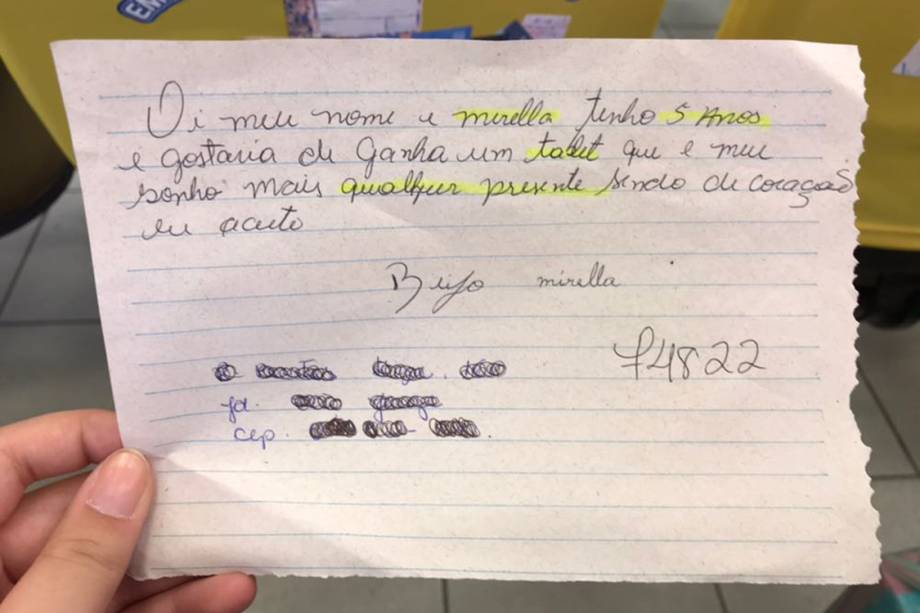 Oi meu nome e mirella tenho 5 Anos
e gostaria de Ganha um tablet que e meu
sonho mais qualquer presente sendo de coração
eu aceito
Beijo mirella
f4822
jd.
cep.